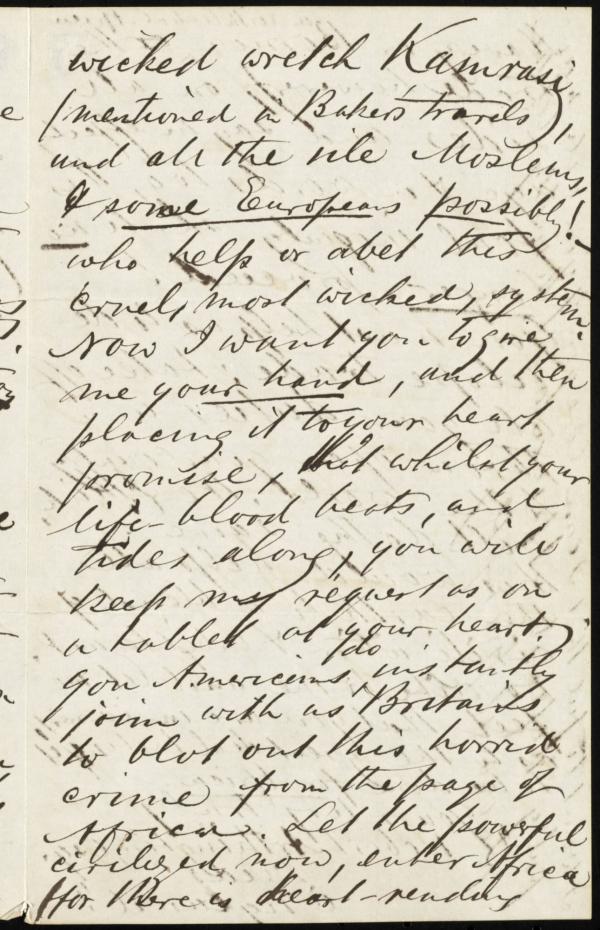 wicked wretch Kamrasi
(mentioned in Baker's travels),
and all the vile Moslems,
& some Europeans possibly!
who help or abet this
cruel, most wicked, system.
Now I want you to give
me your hand, and then
placing it to your heart
promise, that whilst your
life-blood beats, and
tides along, you will
keep my request as on
a tablet at your heart.
you Americans, do instantly
join with us Britains
to blot out this horrid
crime from the page of
Africa. Let the powerful
civilized now, enter Africa
for there is heart-rending